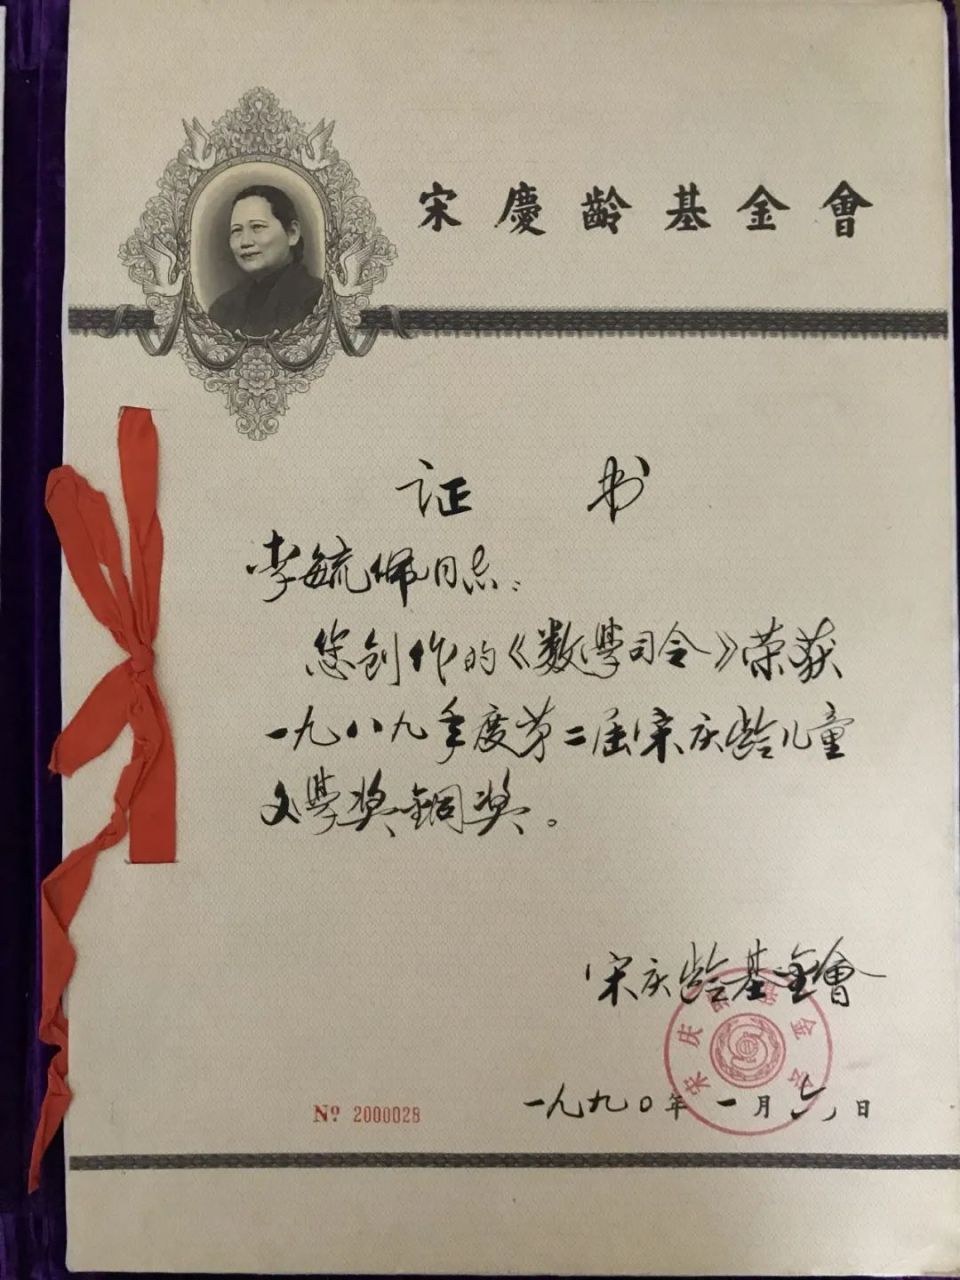 宋慶龄基金會
证书
李毓佩同志：
您创作的《数學司令》荣获
一九八九年度第二届宋庆龄儿童
文學奖銅奖。
宋庆龄基金會
宋庆龄基金会
一九九〇年一月六日
Nº 2000028